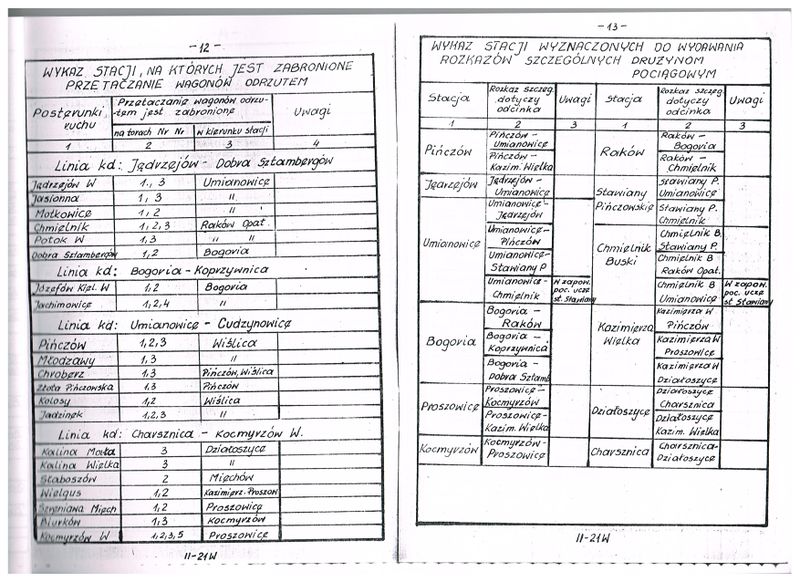 - 12 -
WYKAZ STACJI, NA KTÓRYCH JEST ZABRONIONE
PRZETACZANIE WAGONÓW ODRZUTEM
Posterunki ruchu | Przetaczanie wagonów odrzutem jest zabronione | Uwagi
na torach Nr Nr | w kierunku stacji
1 | 2 | 3 | 4
Linia kd: Jędrzejów - Dobra Sztambergów
Jędrzejów W | 1, 3 | Umianowice
Jasionna | 1, 3 | "
Motkowice | 1, 2 | "
Chmielnik | 1, 2, 3 | Raków Opat.
Potok W | 1,3 | " "
Dobra Sztambergów | 1,2 | Bogoria
Linia kd: Bogoria - Koprzywnica
Józefów Kiel. W | 1,2 | Bogoria
Jachimowice | 1,2,4 | "
Linia kd: Umianowice - Cudzynowice
Pińczów | 1,2,3 | Wiślica
Młodzawy | 1,3 | "
Chroberz | 1,3 | Pińczów, Wiślica
Złota Pińczowska | 1,3 | Pińczów
Kolosy | 1,2 | Wiślica
Jadzinek | 1,2,3 | "
Linia kd: Charsznica - Kocmyrzów W.
Kalina Mała | 3 | Działoszyce
Kalina Wielka | 3 | "
Słaboszów | 2 | Miechów
Wielgus | 1,2 | Kazimierz. Proszow
Szreniawa Miech | 1,2 | Proszowice
Biurków | 1,3 | Kocmyrzów
Kocmyrzów W | 1,2,3,5 | Proszowice
II-21W
- 13 -
WYKAZ STACJI WYZNACZONYCH DO WYDAWANIA
ROZKAZÓW SZCZEGÓLNYCH DRUŻYNOM
POCIĄGOWYM
Stacja | Rozkaz szczeg. dotyczy odcinka | Uwagi | Stacja | Rozkaz szczeg. dotyczy odcinka | Uwagi
1 | 2 | 3 | 1 | 2 | 3
Pińczów | Pińczów - Umianowice | Raków | Raków - Bogoria
Pińczów - Kazim. Wielka | Raków - Chmielnik
Jędrzejów | Jędrzejów - Umianowice | Stawiany Pińczowskie | Stawiany P. Umianowice
Umianowice | Umianowice - Jędrzejów | Stawiany P. Chmielnik
Umianowice - Pińczów | Chmielnik Buski | Chmielnik B. Stawiany P.
Umianowice - Stawiany P | Chmielnik B Raków Opat.
Umianowice - Chmielnik | W zapow. poc. ucze st. Stawiany | Chmielnik B Umianowice | W zapow. poc. ucze st. Stawiany
Bogoria | Bogoria - Raków | Kazimierza Wielka | Kazimierza W Pińczów
Bogoria - Koprzywnica | Kazimierza W Proszowice
Bogoria - Dobra Sztamb | Kazimierza W Działoszyce
Proszowice | Proszowice - Kocmyrzów | Działoszyce | Działoszyce Charsznica
Proszowice - Kazim. Wielka | Działoszyce Kazim. Wielka
Kocmyrzów | Kocmyrzów - Proszowice | Charsznica | Charsznica - Działoszyce
II-21W